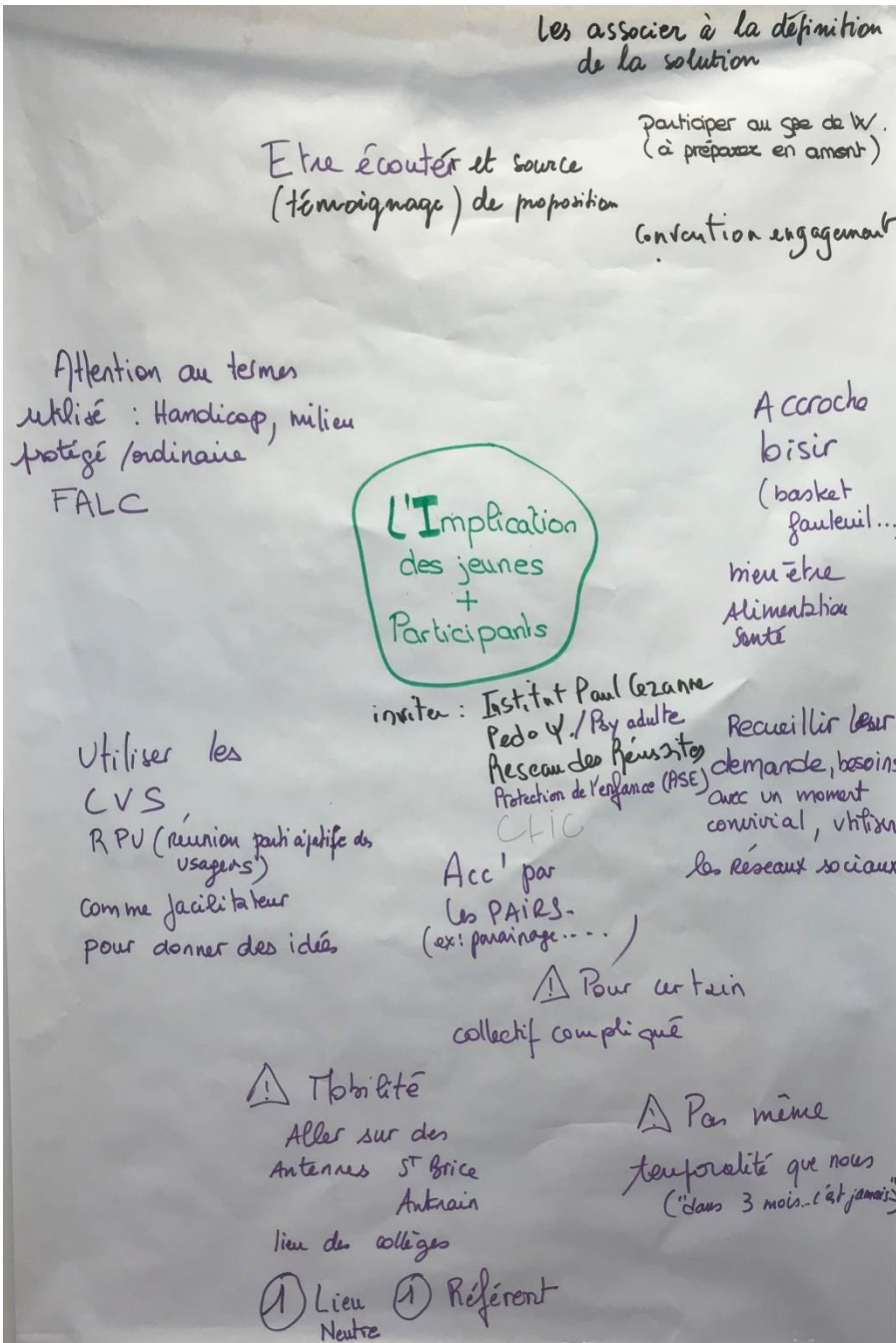 Les associer à la définition
de la solution
participer au gpe de W.
(à préparer en amont)
Etre écoutér et source
(témoignage) de proposition
Convention engagement
Attention au termes
utilisé : Handicap, milieu
protégé /ordinaire
FALC
L'Implication
des jeunes
+
Participants
Accroche
loisir
(basket
fauteuil...)
bien-être
Alimentation
Santé
inviter : Institut Paul Cezanne
Pedo Ψ./Psy adulte
Reseau des Réussites
Protection de l'enfance (ASE)
CLIC
Recueillir leur
demande, besoins
avec un moment
convivial, utiliser
les Réseaux sociaux
Utiliser les
CVS
RPU (réunion participatife des
usagers)
comme facilitateur
pour donner des idées
Acc' par
les PAIRS.
(ex: parainage.....)
⚠ Pour certain
collectif compliqué
⚠ Mobilité
Aller sur des
Antennes ST Brice
Antrain
lieu des collèges
① Lieu ① Référent
Neutre
⚠ Pas même
temporalité que nous
("dans 3 mois..c'est jamais")